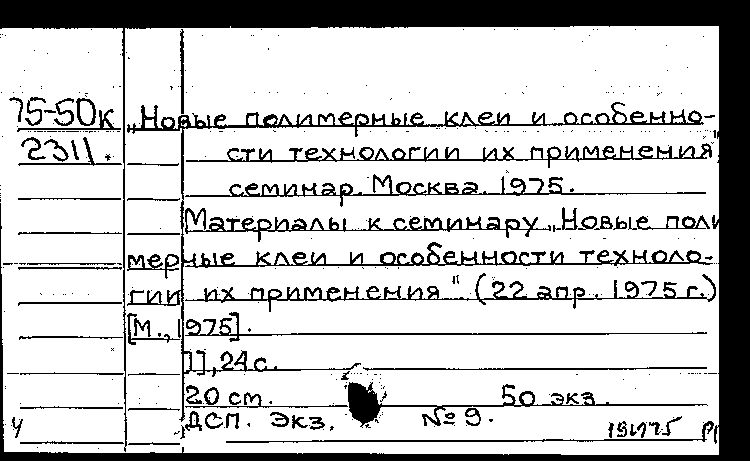 75-50к „Новые полимерные клеи и особенно-
2311. сти технологии их применения",
семинар. Москва. 1975.
Материалы к семинару „Новые поли
мерные клеи и особенности техноло-
гии их применения" (22 апр. 1975 г.)
[М., 1975].
24 с.
20 см. 50 экз.
ДСП. Экз. № 9.